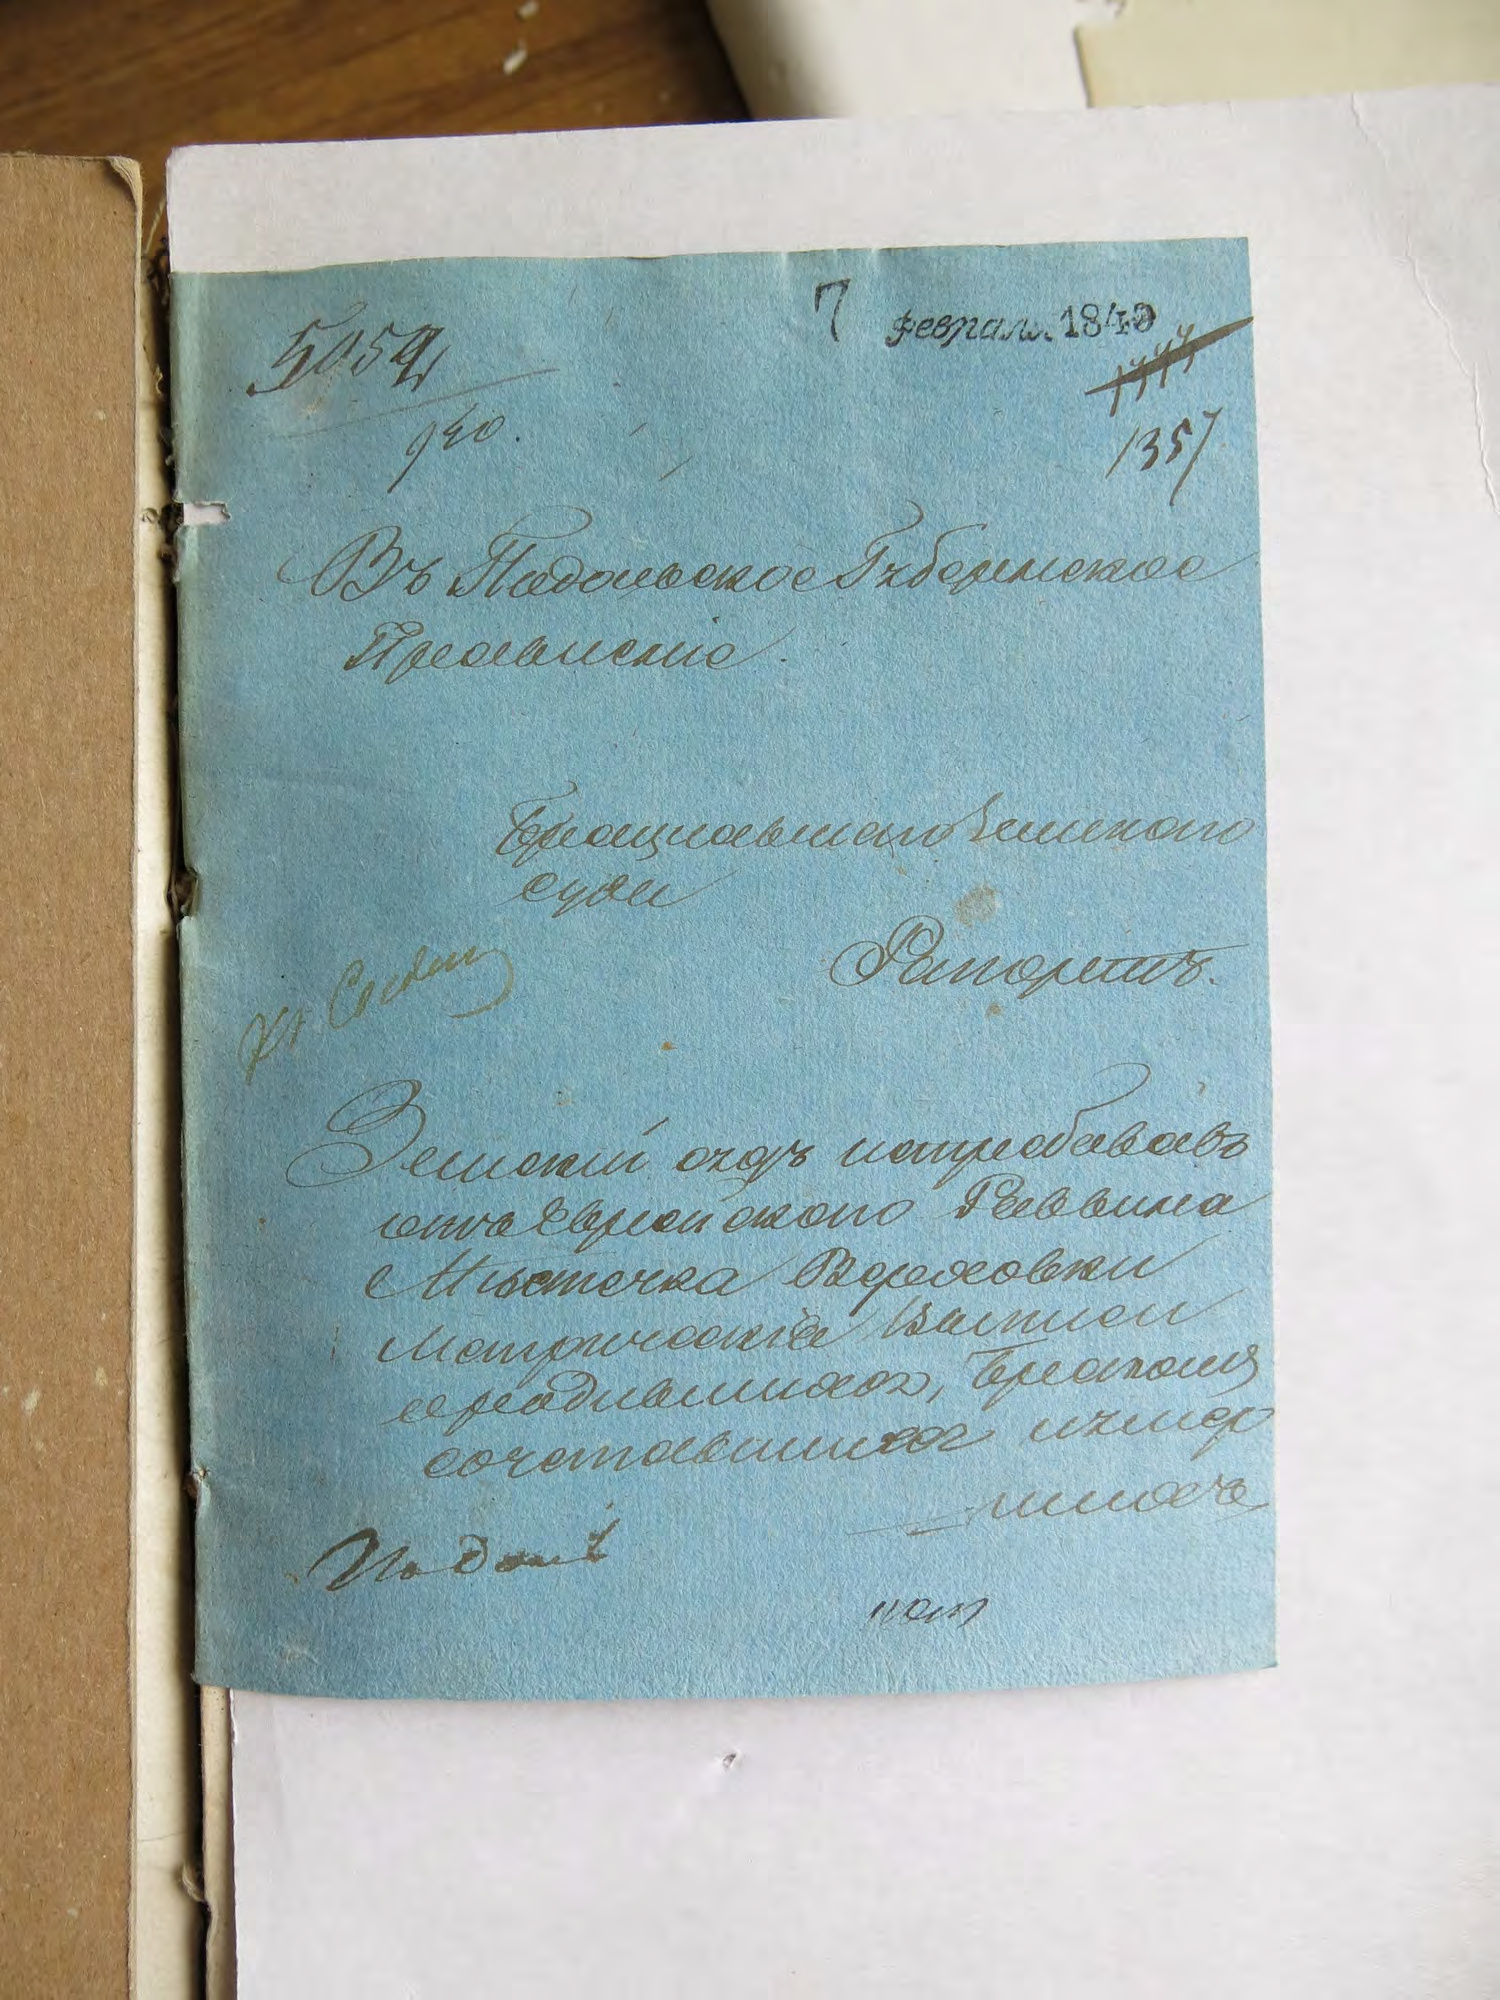 7 февраля 1840
1357
Въ Подольское Губернское
Правленіе.
Брацлавского Земского
суда
Рапортъ.
Земскій судъ истребовавъ
отъ Еврейского Раввина
Местечка Верховки
Метрическіе Записи
о родившихся, бракомъ
сочетавшихся и умер
шихъ